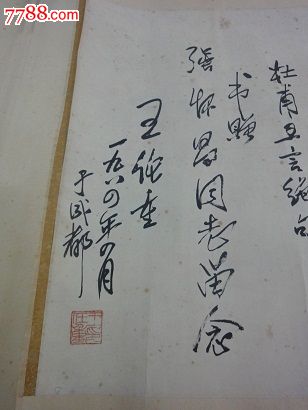 7788.com
杜甫五言绝句
书赠
张怀昌同志留念
王任重
一九八四年四月
于成都